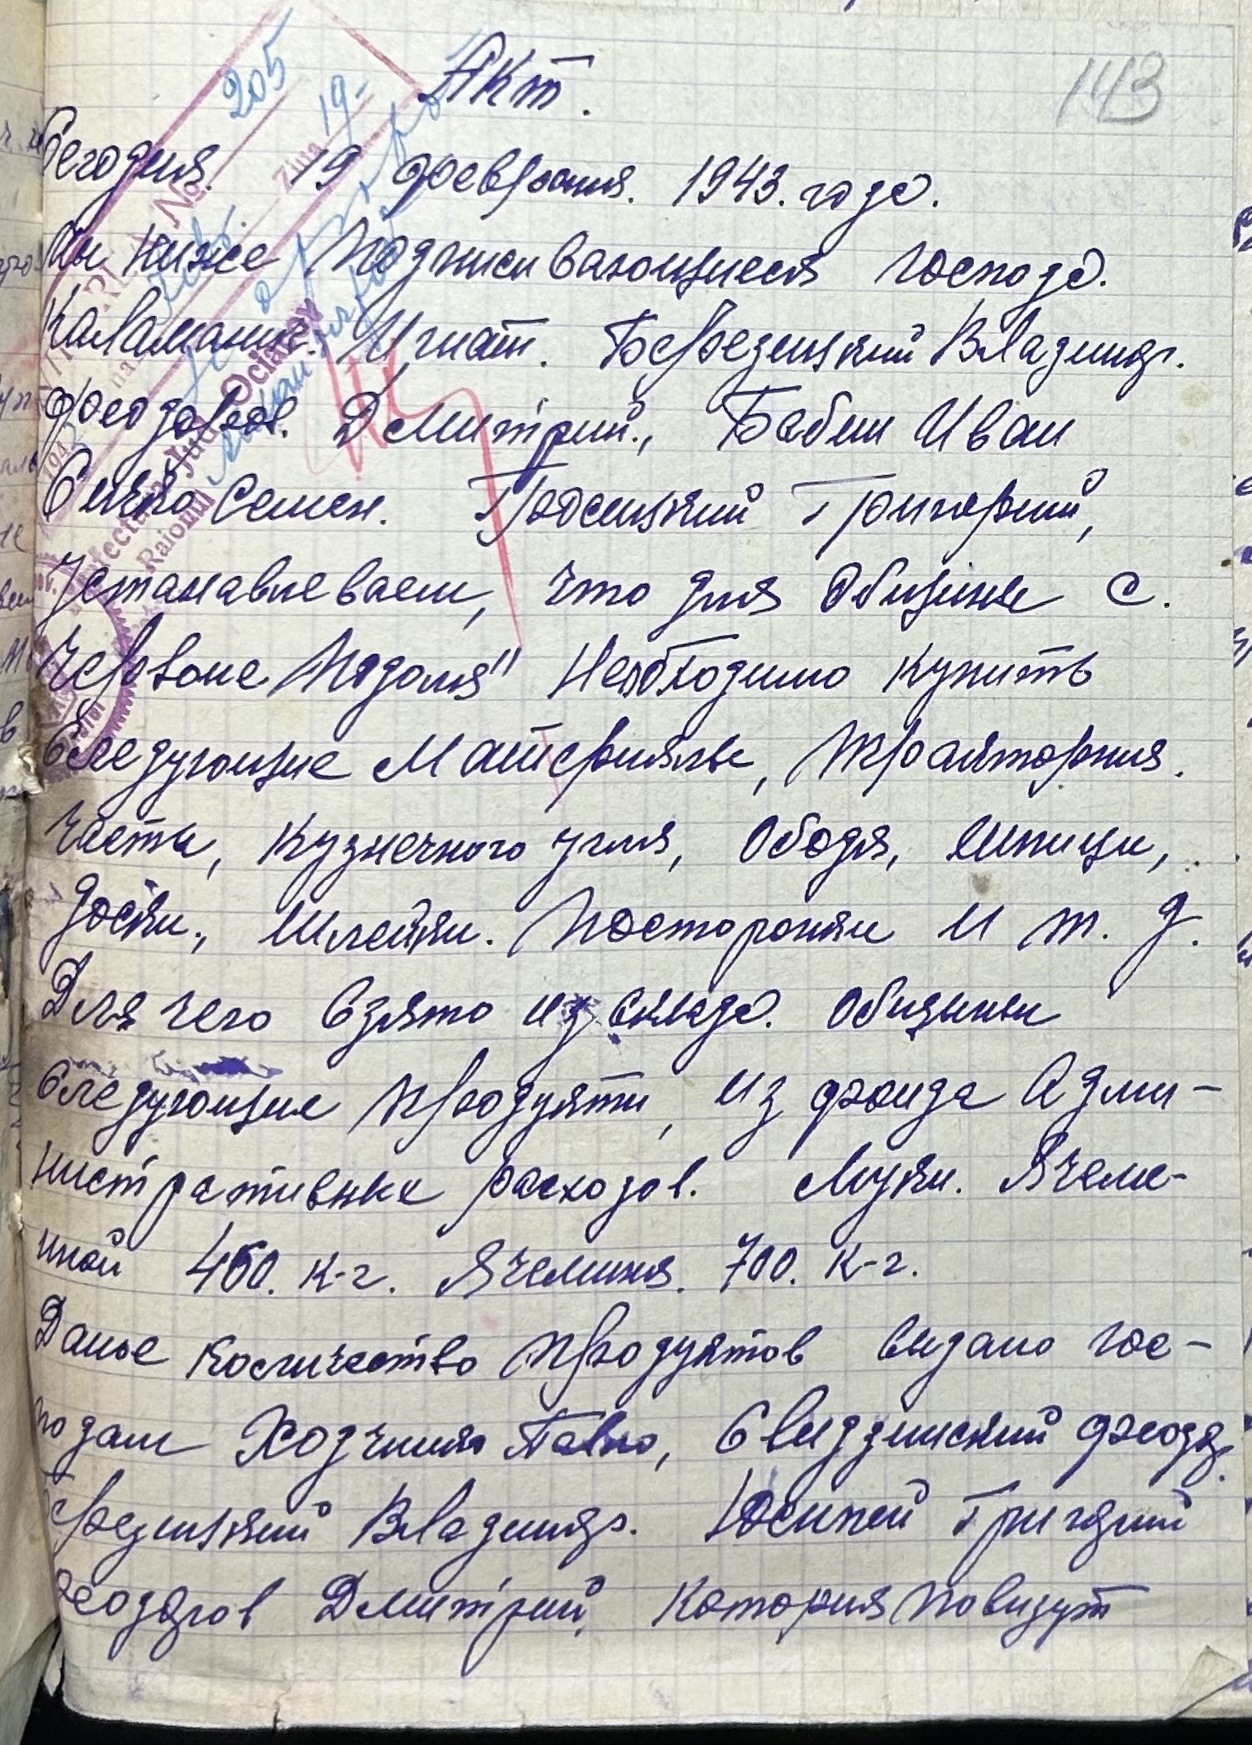 143
205
19
Акт.
Сегодня. 19 февраля. 1943. года.
Мы ниже подписивающиеся господа.
Каламанис. Игнат. Березинский Владимир.
Феодоров. Дмитрий., Бабин Иван
Семен. Григорий,
Устанавлеваем, что для Общины с.
Червоне Подоля" Необходимо купить
Следующие Материялы, тракторния.
Части, Кузнечного угля, Ободя, Шпици,
Доски., Шлейки. Посторонки И т. д.
Для чего взято из склада. Общины
Следующие продукти, из фонда Адми-
нистративных расходов. Муки. Ячме-
ной 450. к-г. Ячминя. 700. к-г.
Даное Количество продуктов видано гос-
подам Павло, Свидзинский Феодр.
Березинский Владимир. Григорий
Феодоров Дмитрий, Котория повизут
Prefectura Jud. Oceacov
Raionul